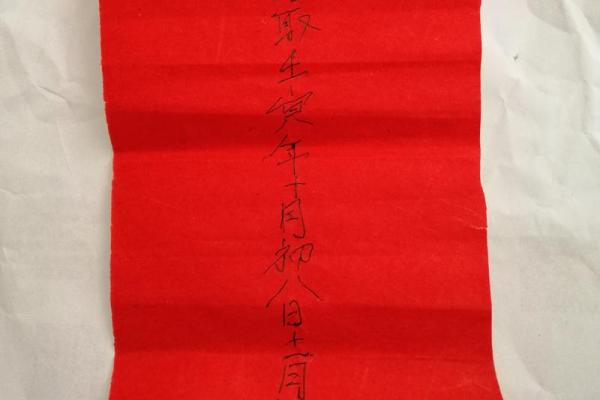 取壬寅年十月初八日十一月